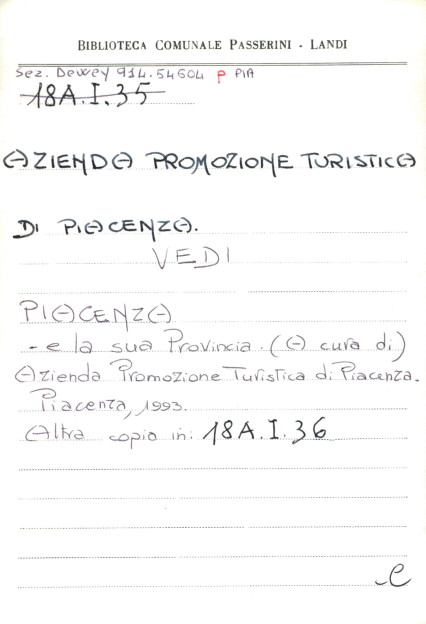 BIBLIOTECA COMUNALE PASSERINI - LANDI
Sez. Dewey 914.54604 P PIA
18A.I.35
AZIENDA PROMOZIONE TURISTICA
DI PIACENZA.
VEDI
PIACENZA
- e la sua Provincia. (A cura di)
Azienda Promozione Turistica di Piacenza.
Piacenza, 1993.
Altra copia in: 18A.I.36